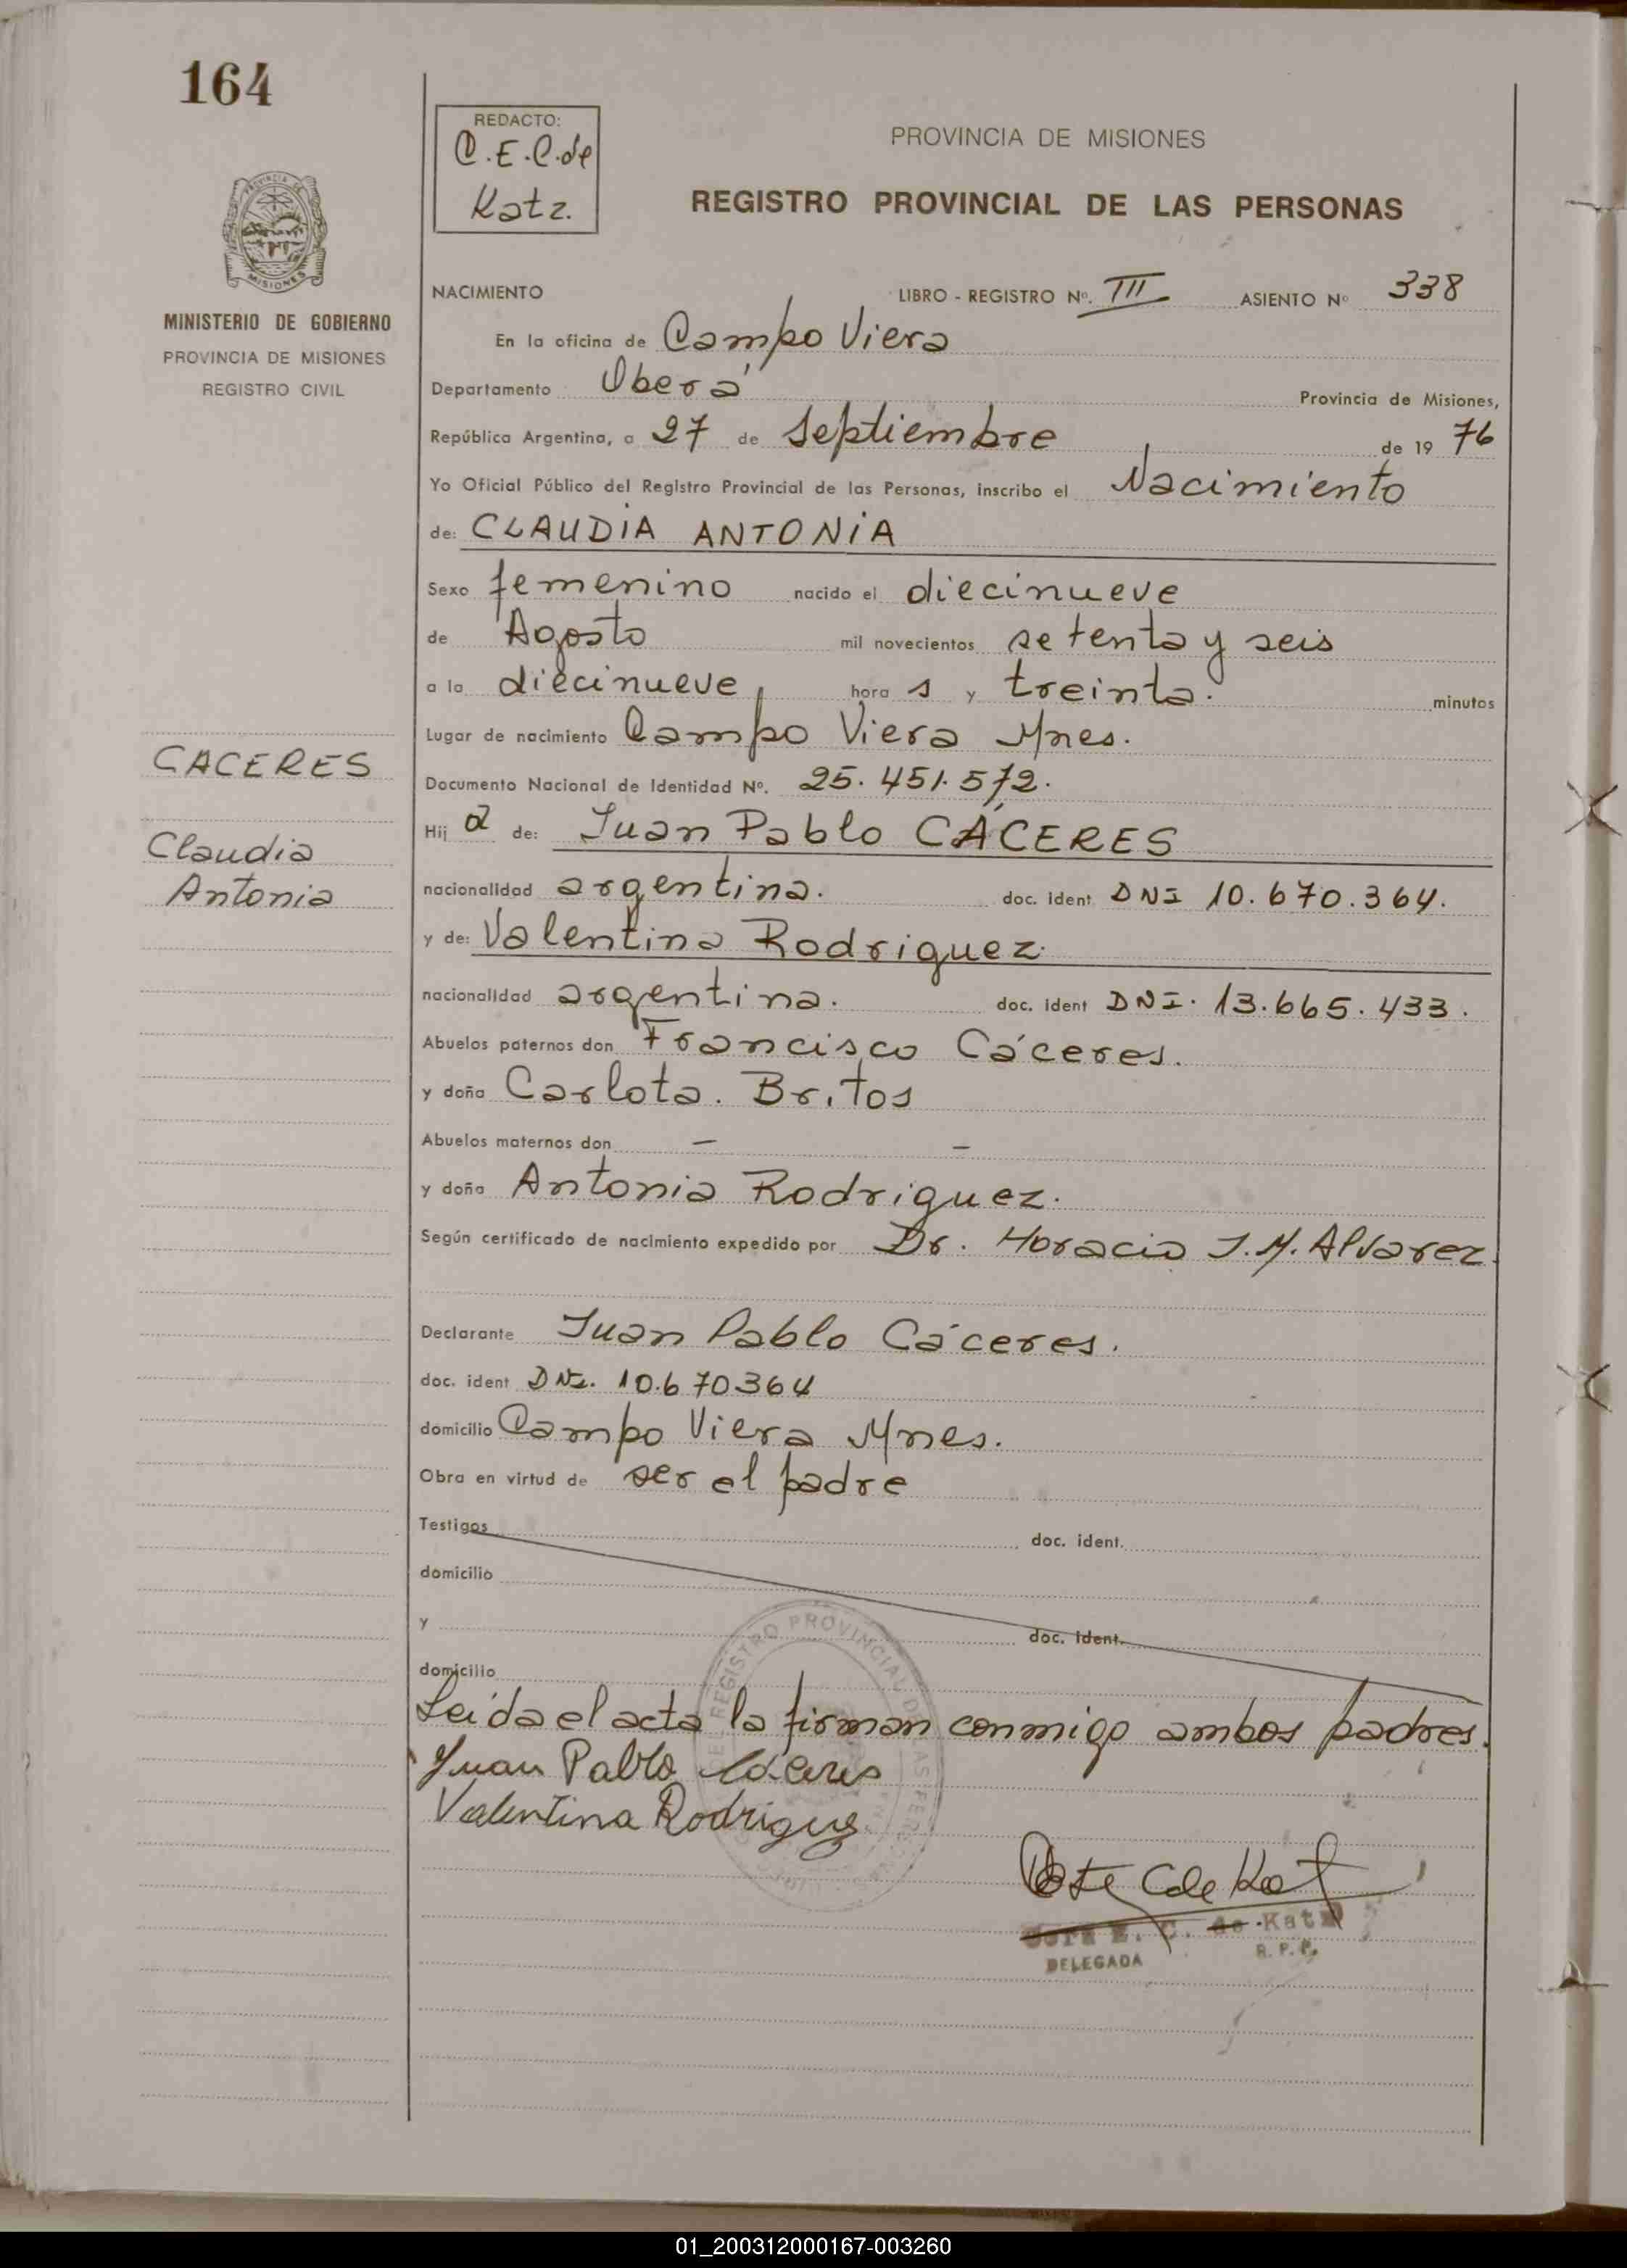 164
REDACTO:
C.E.C. de
Katz.
PROVINCIA DE MISIONES
REGISTRO PROVINCIAL DE LAS PERSONAS
MISIONES
MINISTERIO DE GOBIERNO
PROVINCIA DE MISIONES
REGISTRO CIVIL
NACIMIENTO LIBRO - REGISTRO Nº. III ASIENTO Nº 338
En la oficina de Campo Viera
Departamento Oberá Provincia de Misiones,
República Argentina, a 27 de Septiembre de 19 76
Yo Oficial Público del Registro Provincial de las Personas, inscribo el Nacimiento
de: CLAUDIA ANTONIA
Sexo femenino nacido el diecinueve
de Agosto mil novecientos setenta y seis
a la diecinueve, hora s y treinta. minutos
Lugar de nacimiento Campo Viera Mnes.
CACERES
Documento Nacional de Identidad Nº. 25.451.572.
Claudia
Antonia
Hij a de: Juan Pablo CÁCERES
nacionalidad argentina. doc. ident. DNI 10.670.364.
y de: Valentina Rodriguez.
nacionalidad argentina. doc. ident DNI. 13.665.433.
Abuelos paternos don Francisco Cáceres.
y doña Carlota. Britos
Abuelos maternos don — —
y doña Antonia Rodriguez.
Según certificado de nacimiento expedido por Dr. Horacio J.M. Alvarez
Declarante Juan Pablo Cáceres.
doc. ident DNI. 10.670364
domicilio Campo Viera Mnes.
Obra en virtud de ser el padre
Testigos doc. ident.
domicilio
y doc. ident.
domicilio
REGISTRO PROVINCIAL DE LAS PERSONAS
Leída el acta la firman conmigo ambos padres.
Juan Pablo Cáceres
Valentina Rodriguez
E. C. de Katz
DELEGADA R. P. P.
01_200312000167-003260